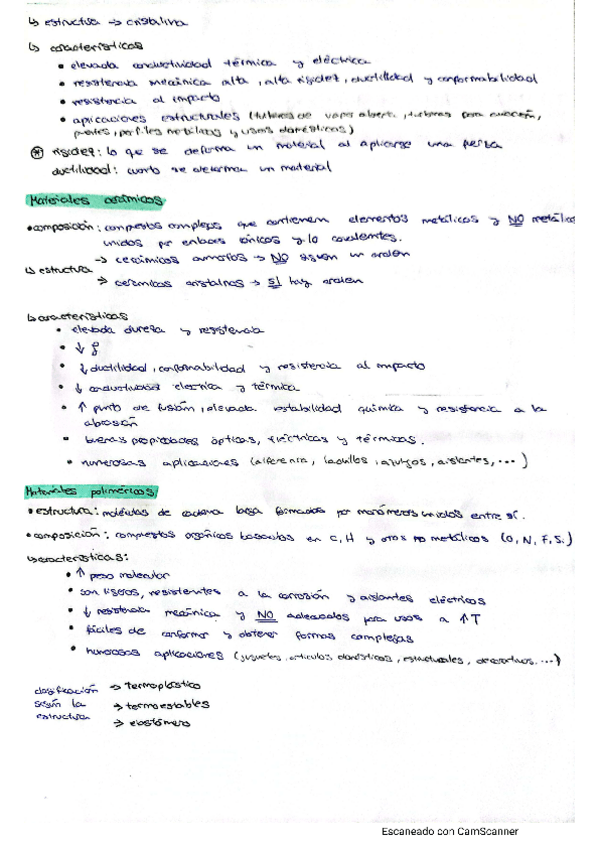 ↳ estructura → cristalina
↳ características
• elevada conductividad térmica y eléctrica
• resistencia mecánica alta, alta rigidez, ductilidad y conformabilidad
• resistencia al impacto
• aplicaciones estructurales (tuberías de vapor abierta, tuberías para
puentes, perfiles metálicos y usos domésticos)
* rigidez: lo que se deforma un material al aplicarse una fuerza
ductilidad: cuanto se deforma un material
Materiales cerámicos
• composición: compuestos complejos que contienen elementos metálicos y NO metálicos
unidos por enlaces iónicos y/o covalentes.
→ cerámicos amorfos → NO siguen un orden
↳ estructura
→ cerámicas cristalinos → SÍ hay orden
↳ características
• elevada dureza y resistencia
• ↓ ρ
• ↓ ductilidad, conformabilidad y resistencia al impacto
• ↓ conductividad eléctrica y térmica
• ↑ punto de fusión, elevada estabilidad química y resistencia a la
abrasión
• buenas propiedades ópticas, eléctricas y térmicas.
• numerosas aplicaciones (alfarería, ladrillos, azulejos, aislantes, ...)
Materiales poliméricos
• estructura: moléculas de cadena larga formadas por monómeros unidos entre sí.
• composición: compuestos orgánicos basados en C, H y otros no metálicos (O, N, F, S.)
↳ características:
• ↑ peso molecular
• son ligeros, resistentes a la corrosión y aislantes eléctricos
• ↓ resistencia mecánica y NO adecuados para usos a ↑T
• fáciles de conformar y obtener formas complejas
• numerosas aplicaciones (juguetes, artículos domésticos, estructurales, decorativos, ...)
clasificación → termoplástico
según la → termoestables
estructura → elastómero
Escaneado con CamScanner